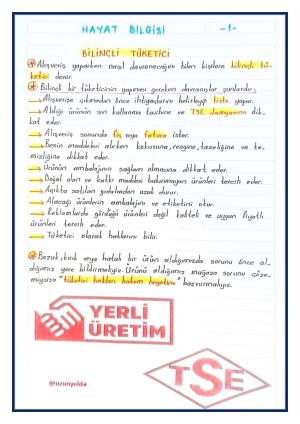 HAYAT BİLGİSİ -1-
BİLİNÇLİ TÜKETİCİ
Alışveriş yaparken nasıl davranacağını bilen kişilere bilinçli tü-
ketici denir.
Bilinçli bir tüketicinin yapması gereken davranışlar şunlardır;
Alışverişe çıkmadan önce ihtiyaçlarını belirleyip liste yapar.
Aldığı ürünün son kullanma tarihine ve TSE damgasına dik-
kat eder.
Alışveriş sonunda fiş veya fatura ister.
Besin maddeleri alırken kokusuna, rengine, tazeliğine ve te-
mizliğine dikkat eder.
Ürünün ambalajının sağlam olmasına dikkat eder.
Doğal olan ve katkı maddesi bulunmayan ürünleri tercih eder.
Açıkta satılan gıdalardan uzak durur.
Alacağı ürünlerin ambalajını ve etiketini okur.
Reklamlarda gördüğü ürünleri değil kaliteli ve uygun fiyatlı
ürünleri tercih eder.
Tüketici olarak haklarını bilir.
Bozuk, kırık veya hatalı bir ürün aldığımızda sorunu önce al-
dığımız yere bildirmeliyiz. Ürünü aldığımız mağaza sorunu çöze-
miyorsa "tüketici hakları hakem heyetine" başvurmalıyız.
YERLİ
ÜRETİM
TSE
@uzunyolda